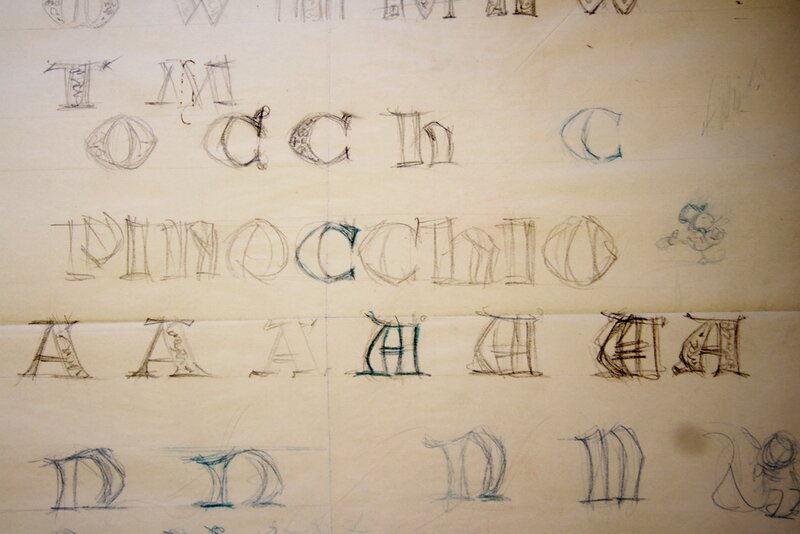 T M
O C C h C
PINOCChIO
A A A A A A A
D D D M